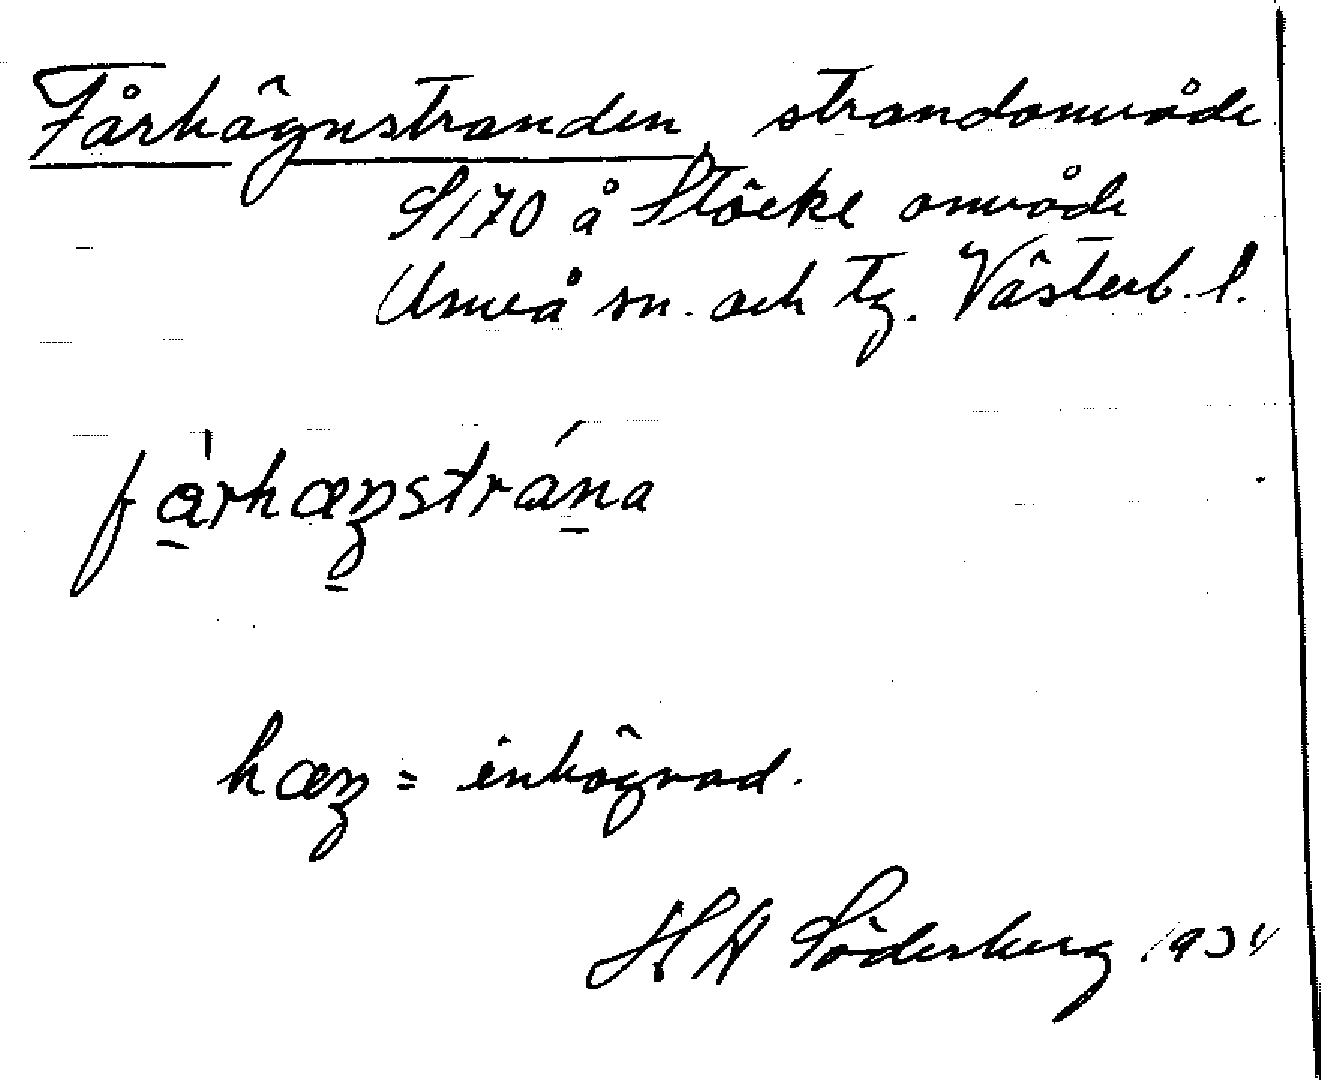 Fårhägnstranden, strandområde
S170 å Stöcke område
Umeå sn. och tg. Västerb. l.
fårhæŋstrána
hæŋ = inhägnad.
H H Söderberg 1934